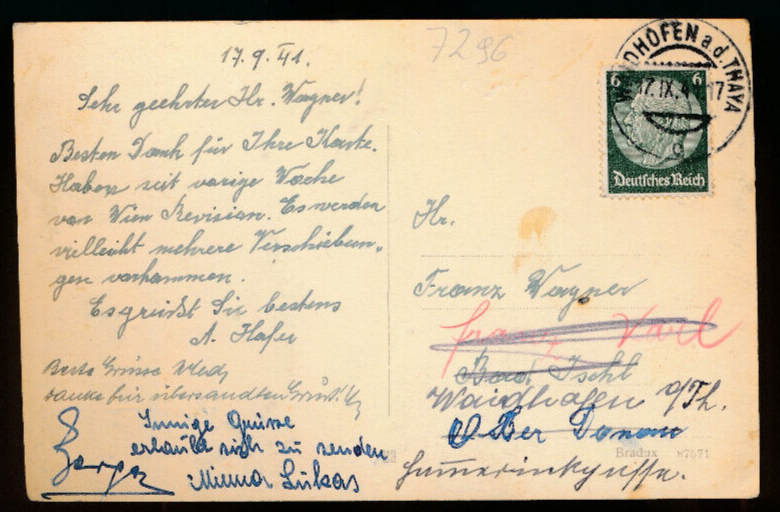 17.9.41.
Sehr geehrter Hr. Wagner!
Besten Dank für Ihre Karte.
Haben seit vorige Woche
von Wien Revision. Es werden
vielleicht mehrere Verschiebun-
gen vorkommen.
Es grüßt Sie bestens
A. Hafer
Beste Grüsse
danke für übersandten
Innige Grüsse
erlaubt sich zu senden
Minna Lukas
7296
WAIDHOFEN a.d. THAYA
17.IX.41 17
6 6
Deutsches Reich
Hr.
Franz Wagner
Franz
Bad Ischl
Waidhofen a/Th.
Ober Donau
Bradux 87071